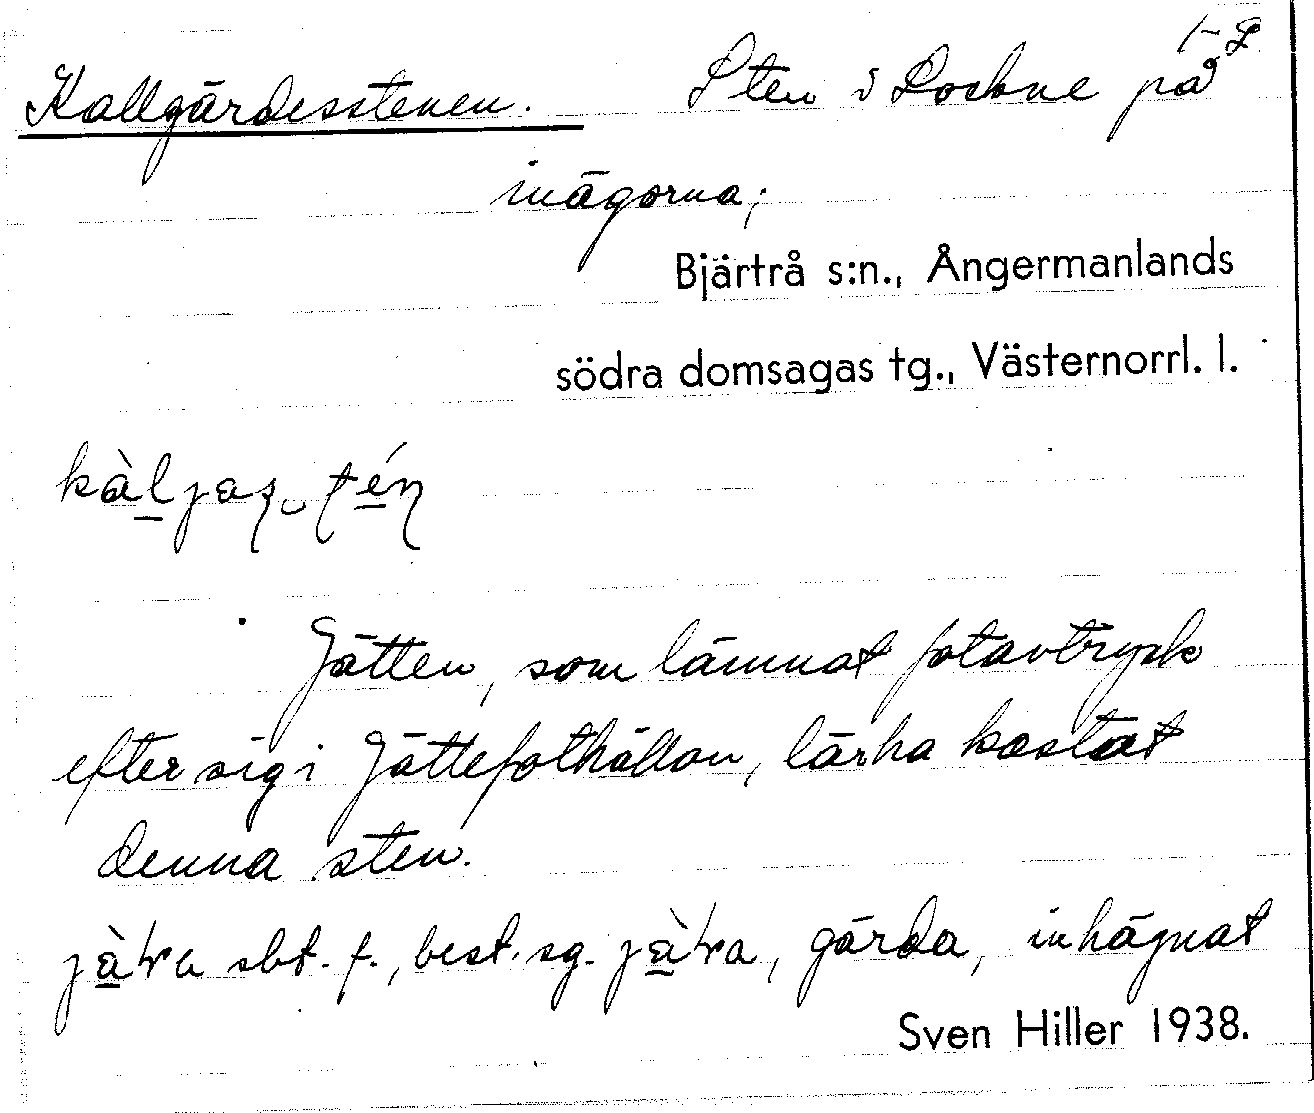 1-2
Kallgärdesstenen. Sten i Lockne på
inägorna;
Bjärtrå s:n., Ångermanlands
södra domsagas tg., Västernorrl. l.
Jätten, som lämnat fotavtryck
efter sig i Jättefothällan, lär ha kastat
denna sten.
sbt. f., best. sg. gärda, inhägnat
Sven Hiller 1938.